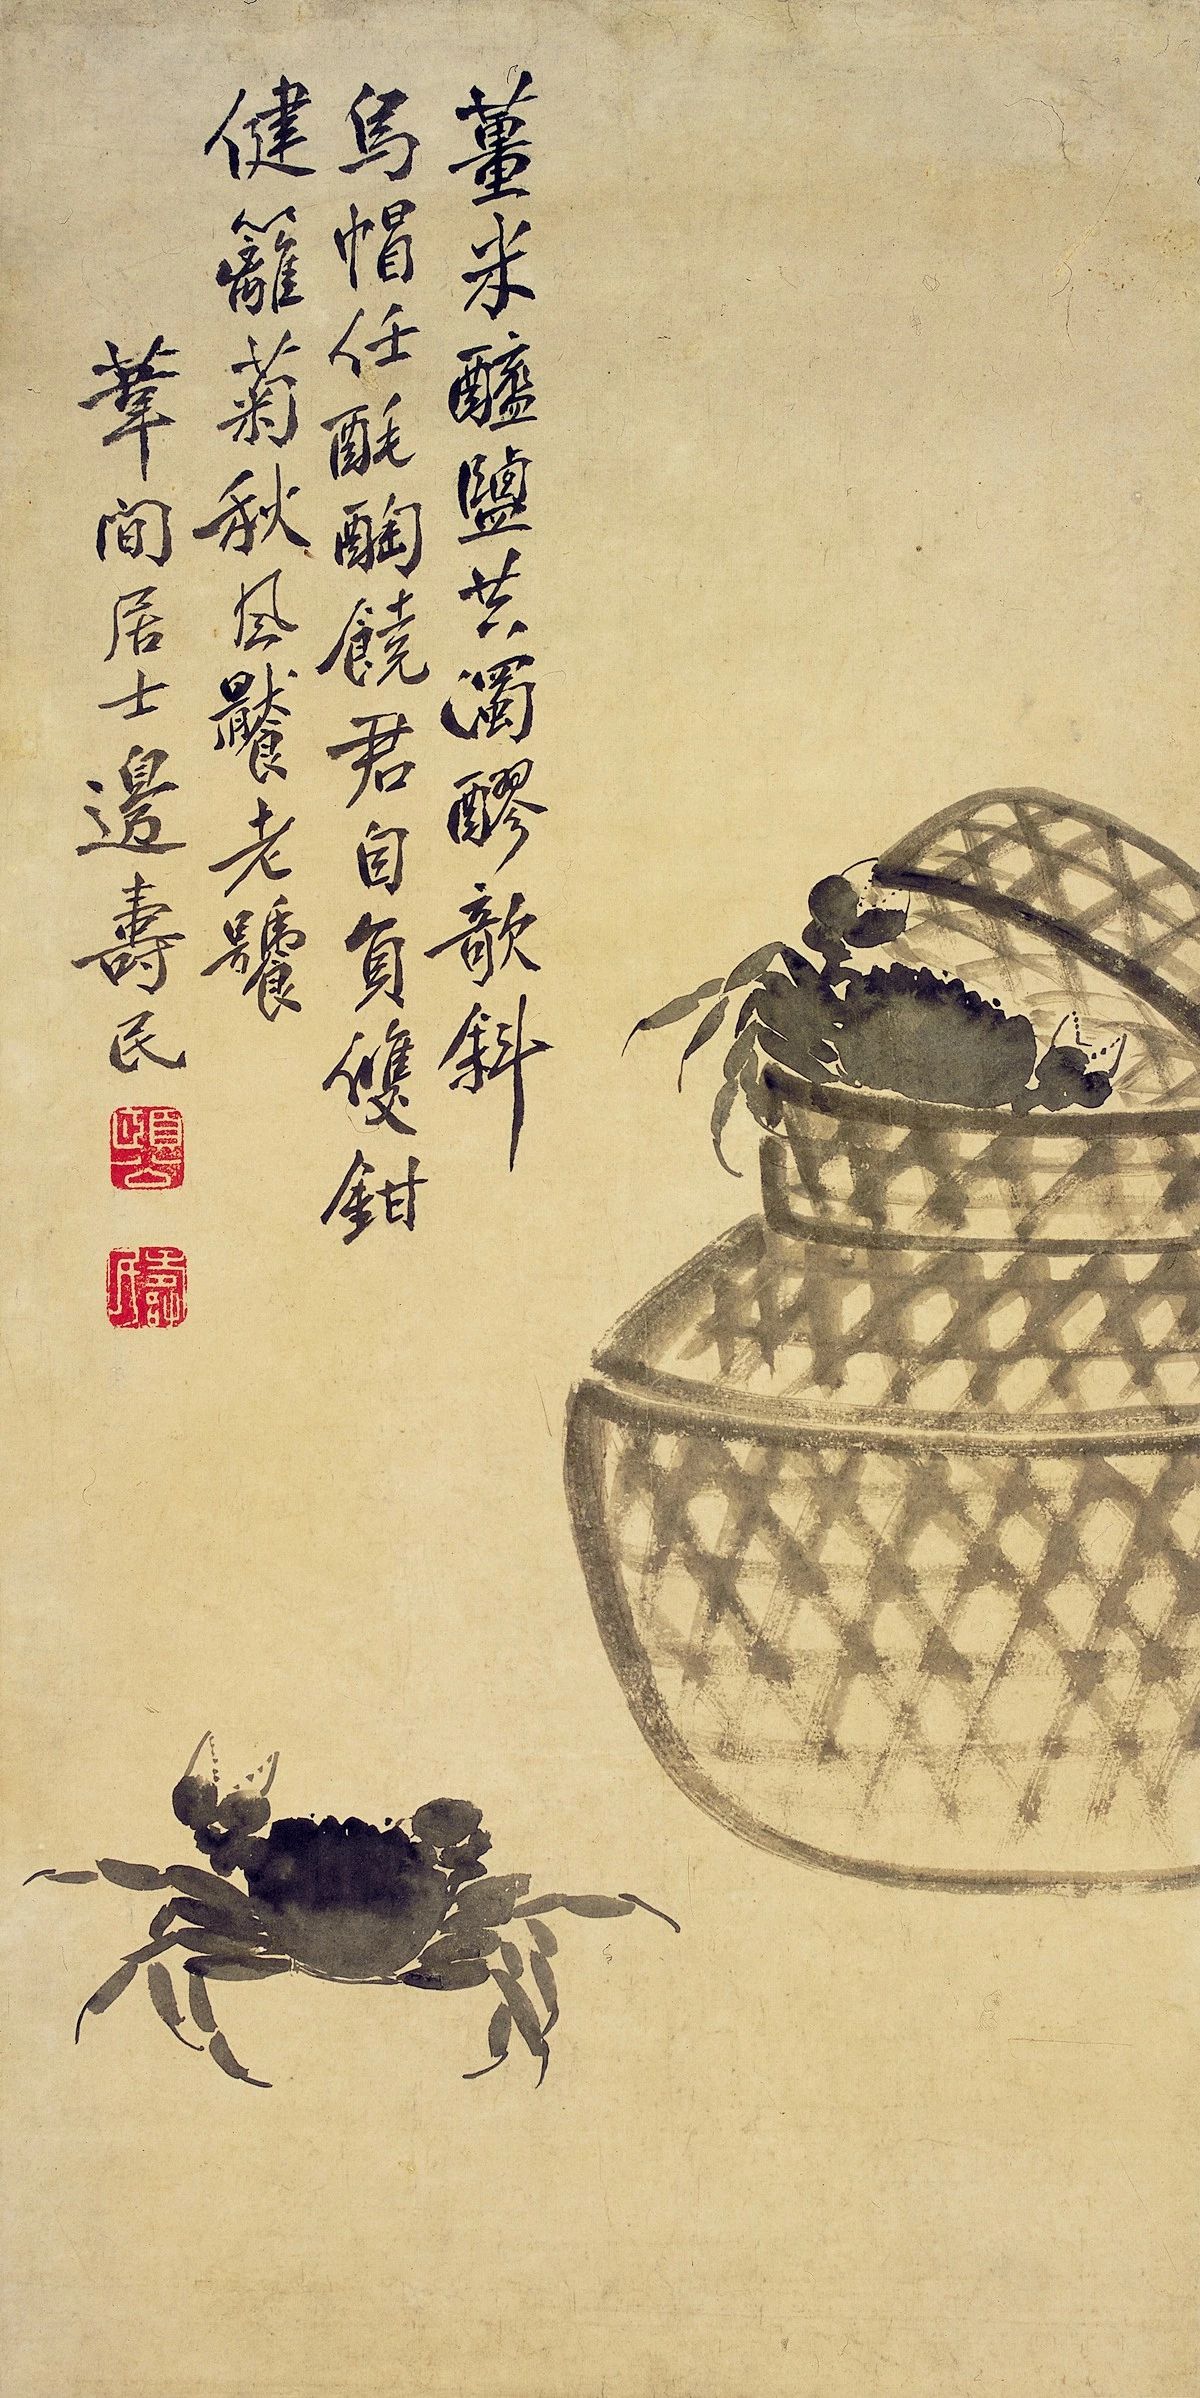 薑米醯鹽共濁醪歆斜
烏帽任酕醄饒君自負雙鉗
健籬菊秋風饜老饕
葦間居士邊壽民
頤公
壽民